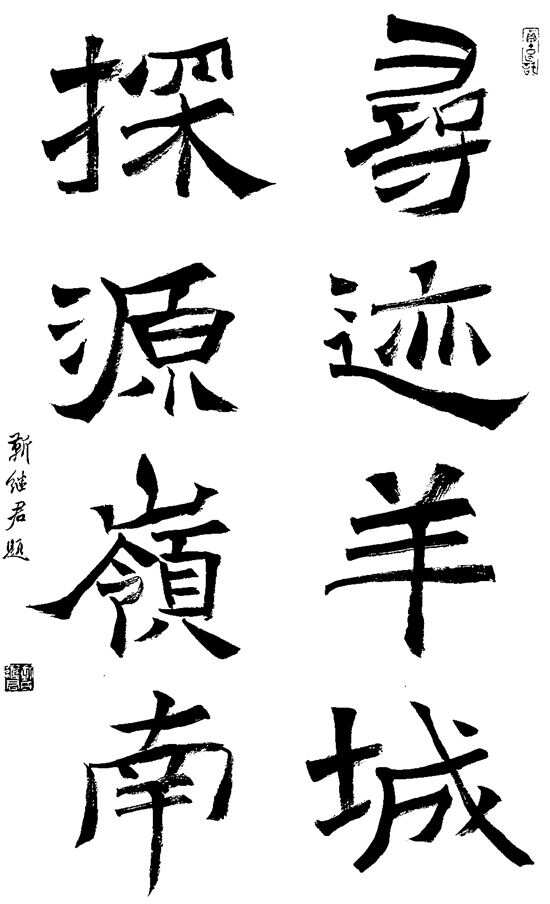 尋迹羊城
探源嶺南
靳继君题